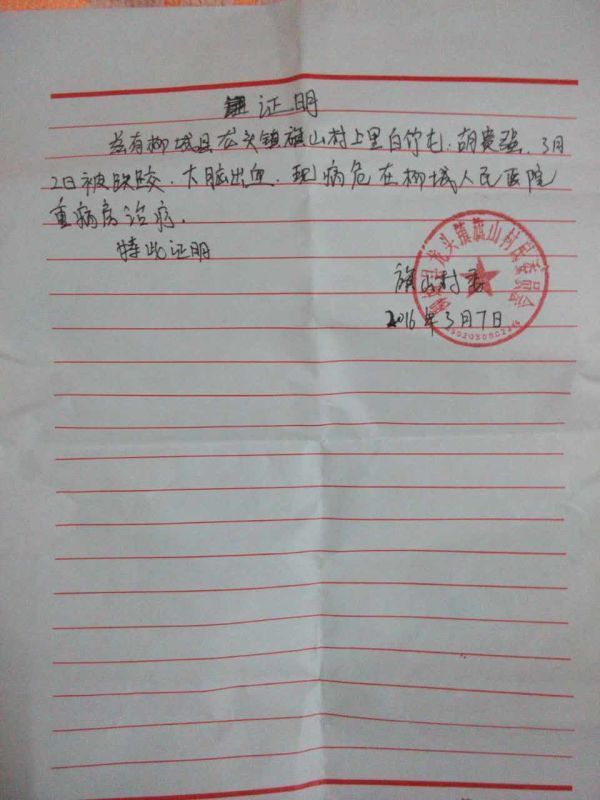 证明
兹有柳城县龙头镇旗山村上里白竹屯:胡贵强、3月
2日被跌跤、大脑出血、现病危在柳城人民医院
重病房治疗.
特此证明
旗山村委
2016年3月7日
龙头镇旗山村民委员会